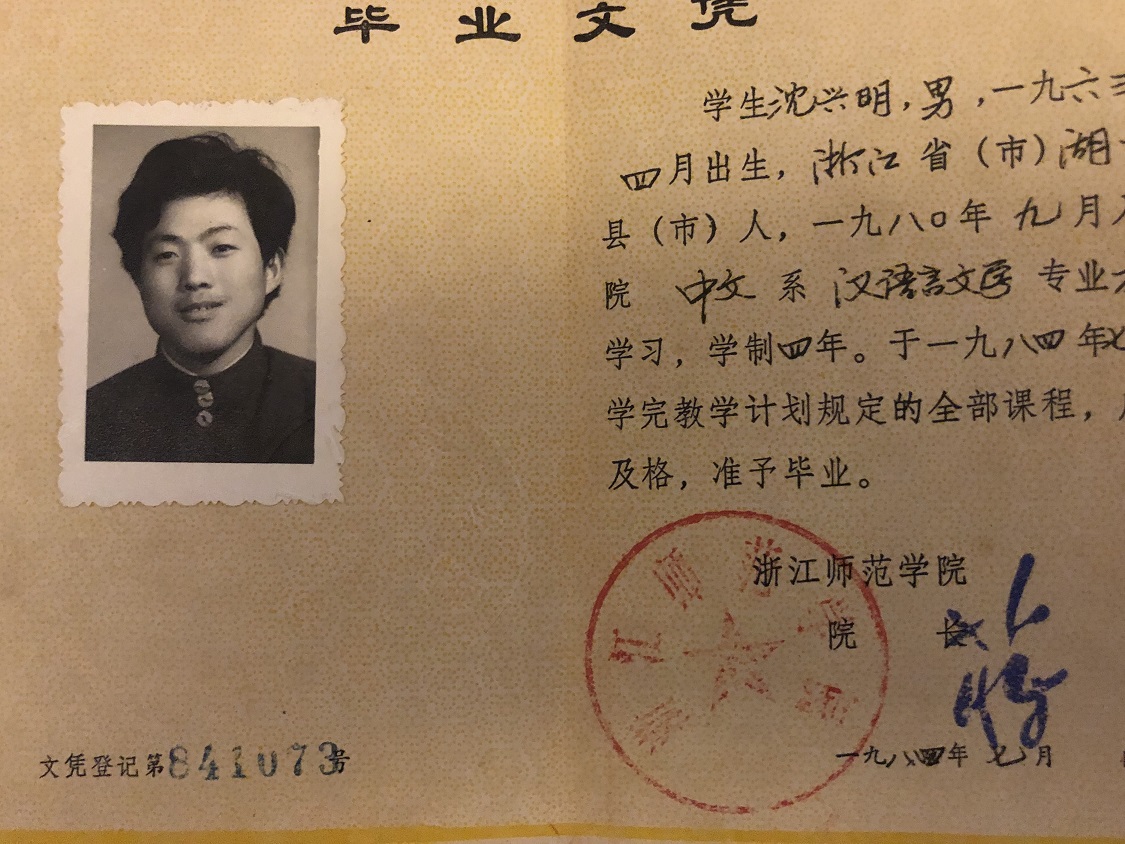 毕业文凭
学生沈兴明，男，一九六三
四月出生，浙江省（市）湖
县（市）人，一九八〇年九月入
院 中文系 汉语言文学 专业
学习，学制四年。于一九八四年七
学完教学计划规定的全部课程，
及格，准予毕业。
浙江师范学院
院 长
一九八四年七月
文凭登记第841073号